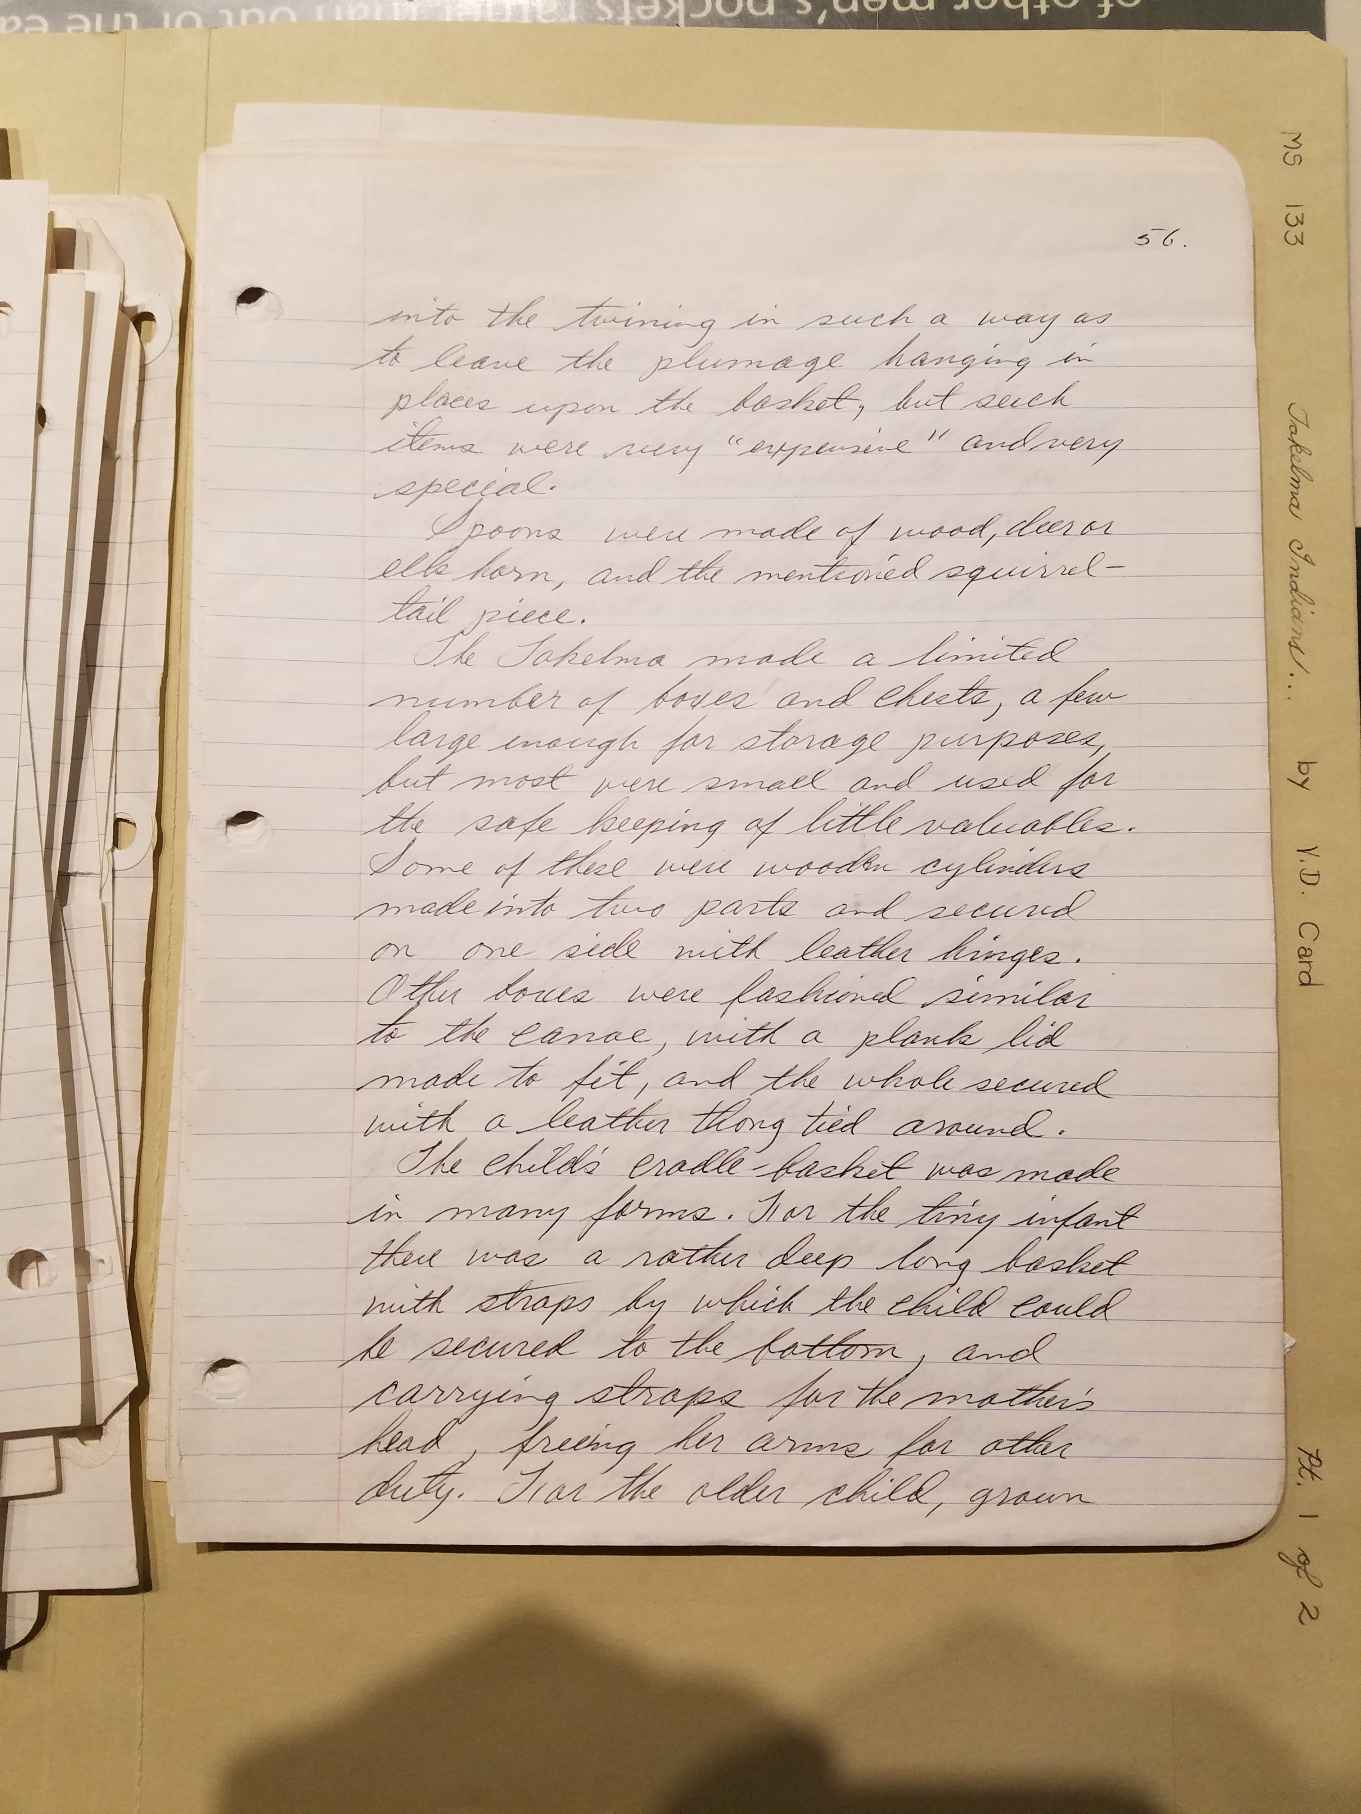 of other men's pockets rather than out of the ea
56.
into the twining in such a way as
to leave the plumage hanging in
places upon the basket, but such
items were very "expensive" and very
special.
Spoons were made of wood, deer or
elk horn, and the mentioned squirrel-
tail piece.
The Takelma made a limited
number of boxes and chests, a few
large enough for storage purposes,
but most were small and used for
the safe keeping of little valuables.
Some of these were wooden cylinders
made into two parts and secured
on one side with leather hinges.
Other boxes were fashioned similar
to the canoe, with a plank lid
made to fit, and the whole secured
with a leather thong tied around.
The child's cradle-basket was made
in many forms. For the tiny infant
there was a rather deep long basket
with straps by which the child could
be secured to the bottom, and
carrying straps for the mother's
head, freeing her arms for other
duty. For the older child, grown
MS 133 Takelma Indians... by Y.D. Card Pt. 1 of 2